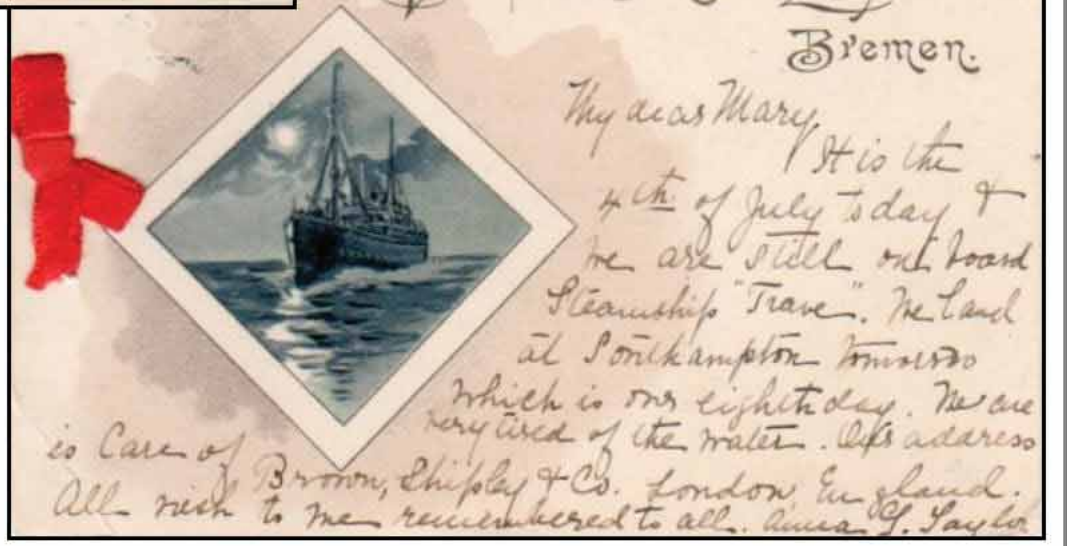 Bremen.
My dear Mary,
It is the
4th of July today &
we are still on board
Steamship "Trave". We Land
at Southampton tomorrow
which is our eighth day. We are
very tired of the water. Our address
is Care of Brown, Shipley & Co. London, England.
All wish to be remembered to all. Anna G. Taylor